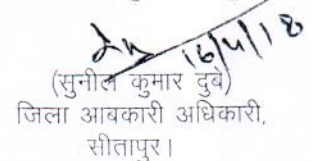 16/4/18
(सुनील कुमार दुबे)
जिला आबकारी अधिकारी,
सीतापुर।